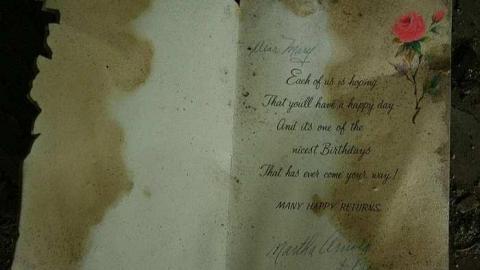 Dear Mary
Each of us is hoping
That you'll have a happy day
And it's one of the
nicest Birthdays
That has ever come your way!
MANY HAPPY RETURNS
Martha